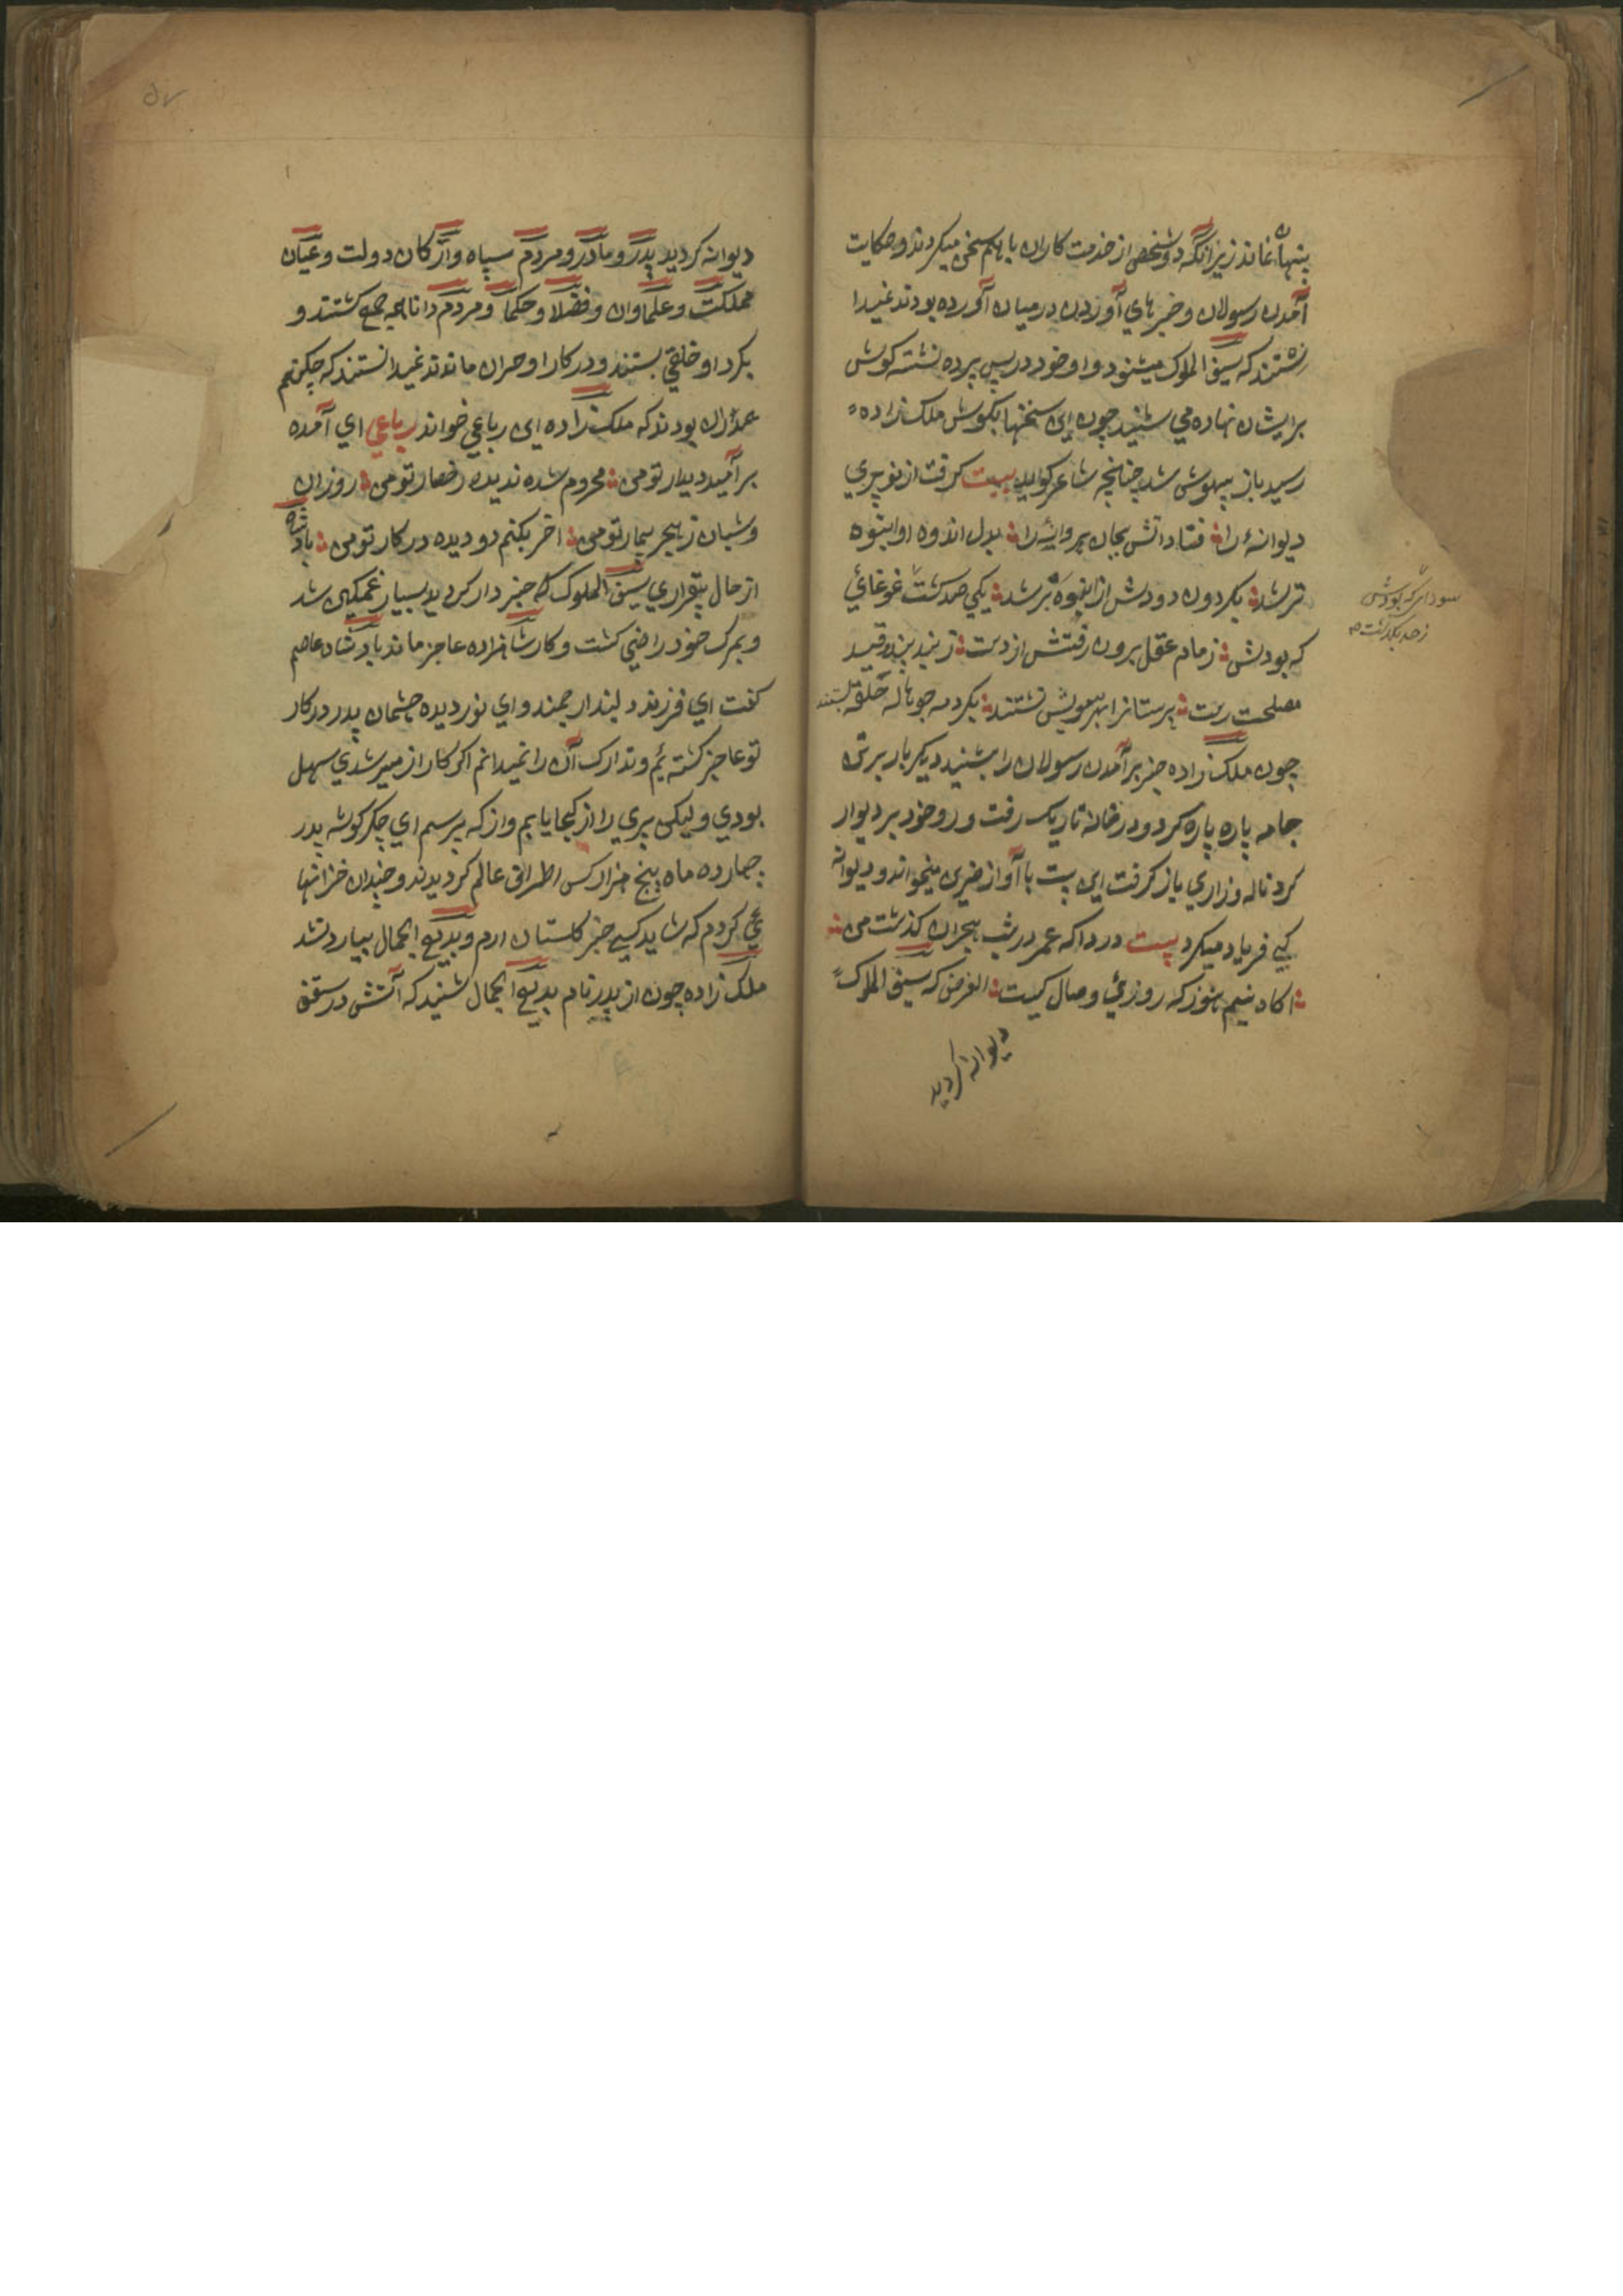 پنهان نماند زیرانکه دو شخص از خدمت کاران باهم سخن میکردند و حکایت
آمدن رسولان و خبرهاي آوردن درمیان آورده بودند نمیدا
نستند که سیف الملوک میشنود و او خود در پس پرده نشته کوش
برایشان نهاده مي شنید چون این سخنها بکوش ملک زاده
رسید باز بیهوش شد چنانچه شاعر کوید بیت کرفت از نو پري
دیوانهٔ را فتاد اتش بجان پروانهٔ را بدل اندوه او انبوه
تر شد بکردون دودش از انبوه بر شد یکي صد کشت غوغائي
که بودش زمام عقل برون رفتش از دست ز بند پند و قید
مصلحت رست پرستاران بهر سویش نشتند بکرد مه چو هاله حلقه بستند
چون ملک زاده خبر برآمدن رسولان را بشنید دیکر بار برتن
جامه پاره پاره کرد و در خانهٔ تاریک رفت و رو خود بر دیوار
کرد ناله و زاري باز کرفت این بیت با آواز حزین میخواند و دیوانه
کي فریاد میکرد بیت دردا که عمر در شب هجران کذشت من
اکاه نیم هنوز که روزئ وصال کیست الغرض که سیف الملوک
دیوانه کردید
سوداي که بودش
ز حد بکذشت
دیوانه کردید پدر و مادر و مردم سپاه و ارکان دولت و عیان
مملکت و علماوان و فضلا و حکما و مردم دانا همه جمع کشتند و
بکرد او حلقي بستند و در کار او حیران ماندند نمیدانستند که چکنم
همدران بودند که ملک زاده این رباعي خواند رباعي اي آمده
بر آمید دیدار تو من محروم شده ندیده رخسار تو من روزان
و شبان ز هجر بیمار تو من اخر بکنم دو دیده در کار تو من پادشاه
از حال بیقراري سیف الملوک که خبر دار کردید بسیار غمکین شد
و بمرک خود راضي کشت و کار شاهزاده عاجز ماند پادشاه عاصم
کفت اي فرزند دلبند ارجمند و اي نور دیده چشمان پدر در کار
تو عاجز کشته ئیم و تدارک آن را نمیدانم اکر کار از میسر شدي سهل
بودي و لیکن پري را از کجا یابم و از که پرسم اي جکر کوشه پدر
چهارده ماه پنج هزار کس اطراف عالم کردیدند و چندان خزانها
خرج کردم که شاید کسي خبر کلستان ارم و بدیع الجمال بیارد نشد
ملک زاده چون از پدر نام بدیع الجمال شنید که آتش در سقف